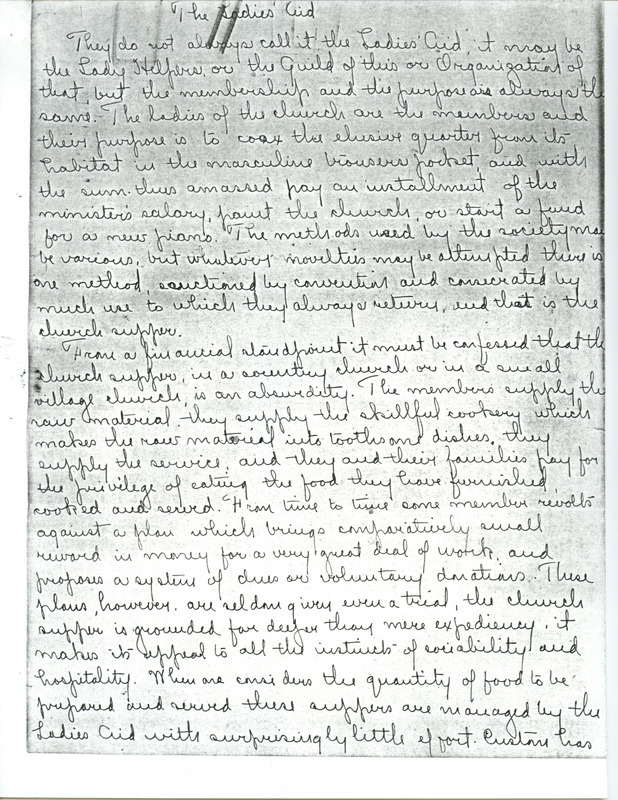 The Ladies' Aid
They do not always call it the Ladies' Aid, it may be
the Lady Helpers, or the Guild of this or Organization of
that, but the membership and the purpose is always the
same. The ladies of the church are the members and
their purpose is to coax the elusive quarter from its
habitat in the masculine trousers pocket, and with
the sum thus amassed pay an installment of the
minister's salary, paint the church, or start a fund
for a new piano. The methods used by the society may
be various, but whatever novelties may be attempted there is
one method, sanctioned by convention and consecrated by
much use to which they always return, and that is the
church supper.
From a financial standpoint it must be confessed that the
church supper, in a country church or in a small
village church, is an absurdity. The members supply the
raw material, they supply the skillful cookery which
makes the raw material into toothsome dishes, they
supply the service, and they and their families pay for
the privilege of eating the food they have furnished,
cooked and served. From time to time some member revolts
against a plan which brings comparatively small
reward in money for a very great deal of work, and
proposes a system of dues or voluntary donations. These
plans, however, are seldom given even a trial, the church
supper is grounded far deeper than mere expediency, it
makes its appeal to all the instincts of sociability and
hospitality. When one considers the quantity of food to be
prepared and served these suppers are managed by the
Ladies Aid with surprisingly little effort. Custom has